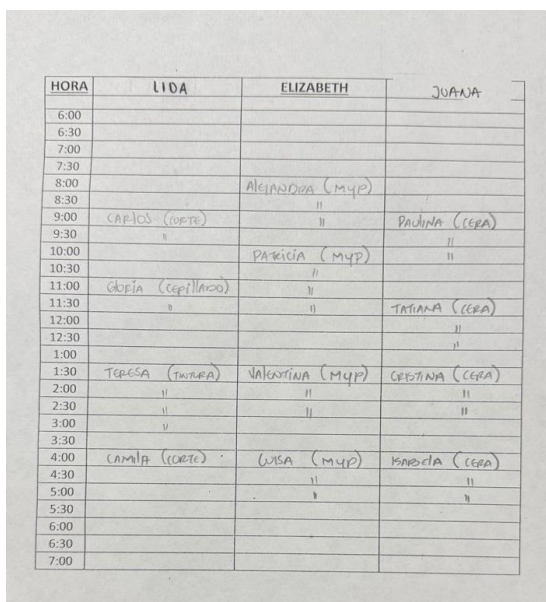 HORA LIDA ELIZABETH JUANA
6:00
6:30
7:00
7:30
8:00 AlEJANDRA (MYP)
8:30 "
9:00 CARlOS (CORTE) " PAULINA (CERA)
9:30 " "
10:00 PATRICIA (MYP) "
10:30 "
11:00 GlORIA (CEPIllADO) "
11:30 " " TATIANA (CERA)
12:00 "
12:30 "
1:00
1:30 TERESA (TINTURA) VAlENTINA (MYP) CRISTINA (CERA)
2:00 " " "
2:30 " " "
3:00 "
3:30
4:00 CAMIlA (CORTE) LUISA (MYP) ISABElA (CERA)
4:30 " "
5:00 " "
5:30
6:00
6:30
7:00